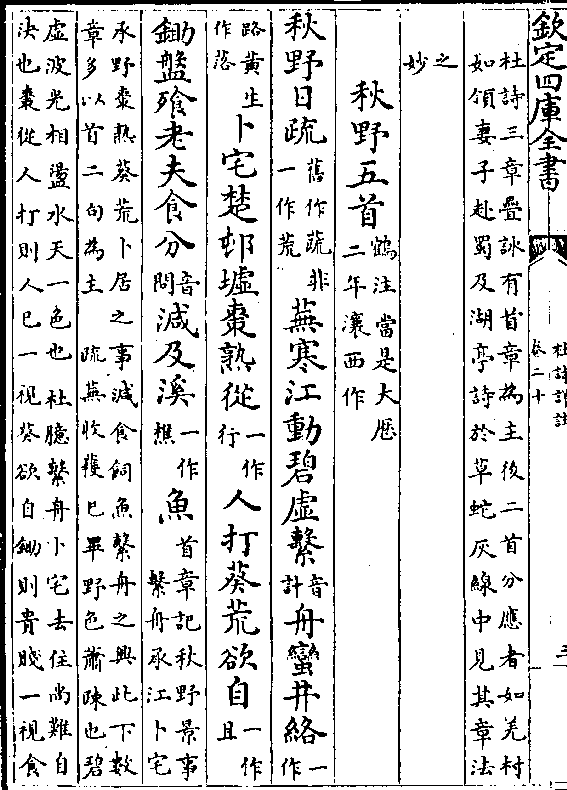 欽定四庫全書
杜詩詳註
卷二十
杜詩三章疊詠有首章為主後二首分應者如羌村
如領妻子赴蜀及湖亭詩於草蛇灰線中見其章法
之
妙
秋野五首
鶴注當是大厯
二年瀼西作
秋野日疏
舊作蔬非
一作荒
蕪寒江動碧虛繫
音
計
舟蠻井絡
一
作
路黄生
作落
卜宅楚邨墟棗熟從
一作
行
人打葵荒欲自
一作
且
鋤盤飱老夫食分
音
問
減及溪
一作
樵
魚
首章記秋野景事
繫舟承江卜宅
承野棗熟葵荒卜居之事減食飼魚繫舟之興此下數
章多以首二句為主
疏蕪收穫已畢野色蕭踈也碧
虛波光相盪水天一色也
杜臆繫舟卜宅去住尚難自
決也棗從人打則人已一視葵欲自鋤則貴賤一視食